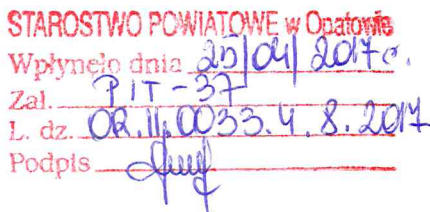 STAROSTWO POWIATOWE w Opatowie
Wpłynęło dnia 25/04/2017 r.
Zał. PIT-37
L. dz. OR.II.0033.4.8.2017
Podpis